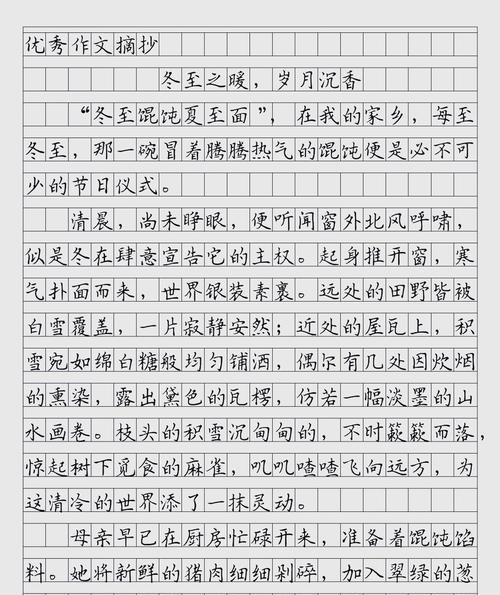 优秀作文摘抄
冬至之暖，岁月沉香
“冬至馄饨夏至面”，在我的家乡，每至
冬至，那一碗冒着腾腾热气的馄饨便是必不可
少的节日仪式。
清晨，尚未睁眼，便听闻窗外北风呼啸，
似是冬在肆意宣告它的主权。起身推开窗，寒
气扑面而来，世界银装素裹。远处的田野皆被
白雪覆盖，一片寂静安然；近处的屋瓦上，积
雪宛如绵白糖般均匀铺洒，偶尔有几处因炊烟
的熏染，露出黛色的瓦楞，仿若一幅淡墨的山
水画卷。枝头的积雪沉甸甸的，不时簌簌而落，
惊起树下觅食的麻雀，叽叽喳喳飞向远方，为
这清冷的世界添了一抹灵动。
母亲早已在厨房忙碌开来，准备着馄饨馅
料。她将新鲜的猪肉细细剁碎，加入翠绿的葱